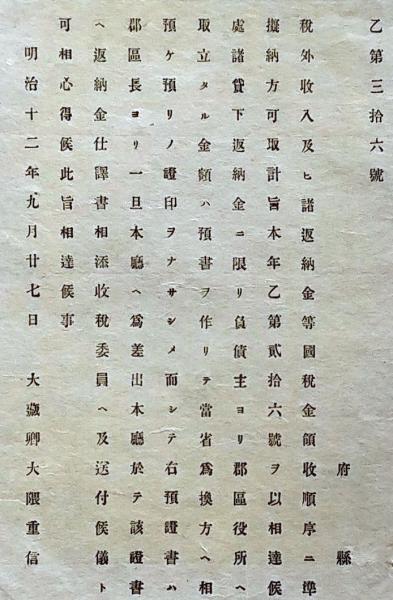 乙第三拾六號
府縣
税外收入及ヒ諸返納金等國税金領收順序ニ準
擬納方可取計旨本年乙第貳拾六號ヲ以相達候
處諸貸下返納金ニ限リ負債主ヨリ郡區役所ヘ
取立タル金額ハ預書ヲ作リテ當省爲換方ヘ相
預ケ預リノ證印ヲナサシメ而シテ右預證書ハ
郡區長ヨリ一旦本廳ヘ爲差出本廳於テ該證書
ヘ返納金仕譯書相添收税委員ヘ及送付候儀ト
可相心得候此旨相達候事
明治十二年九月廿七日 大藏卿大隈重信